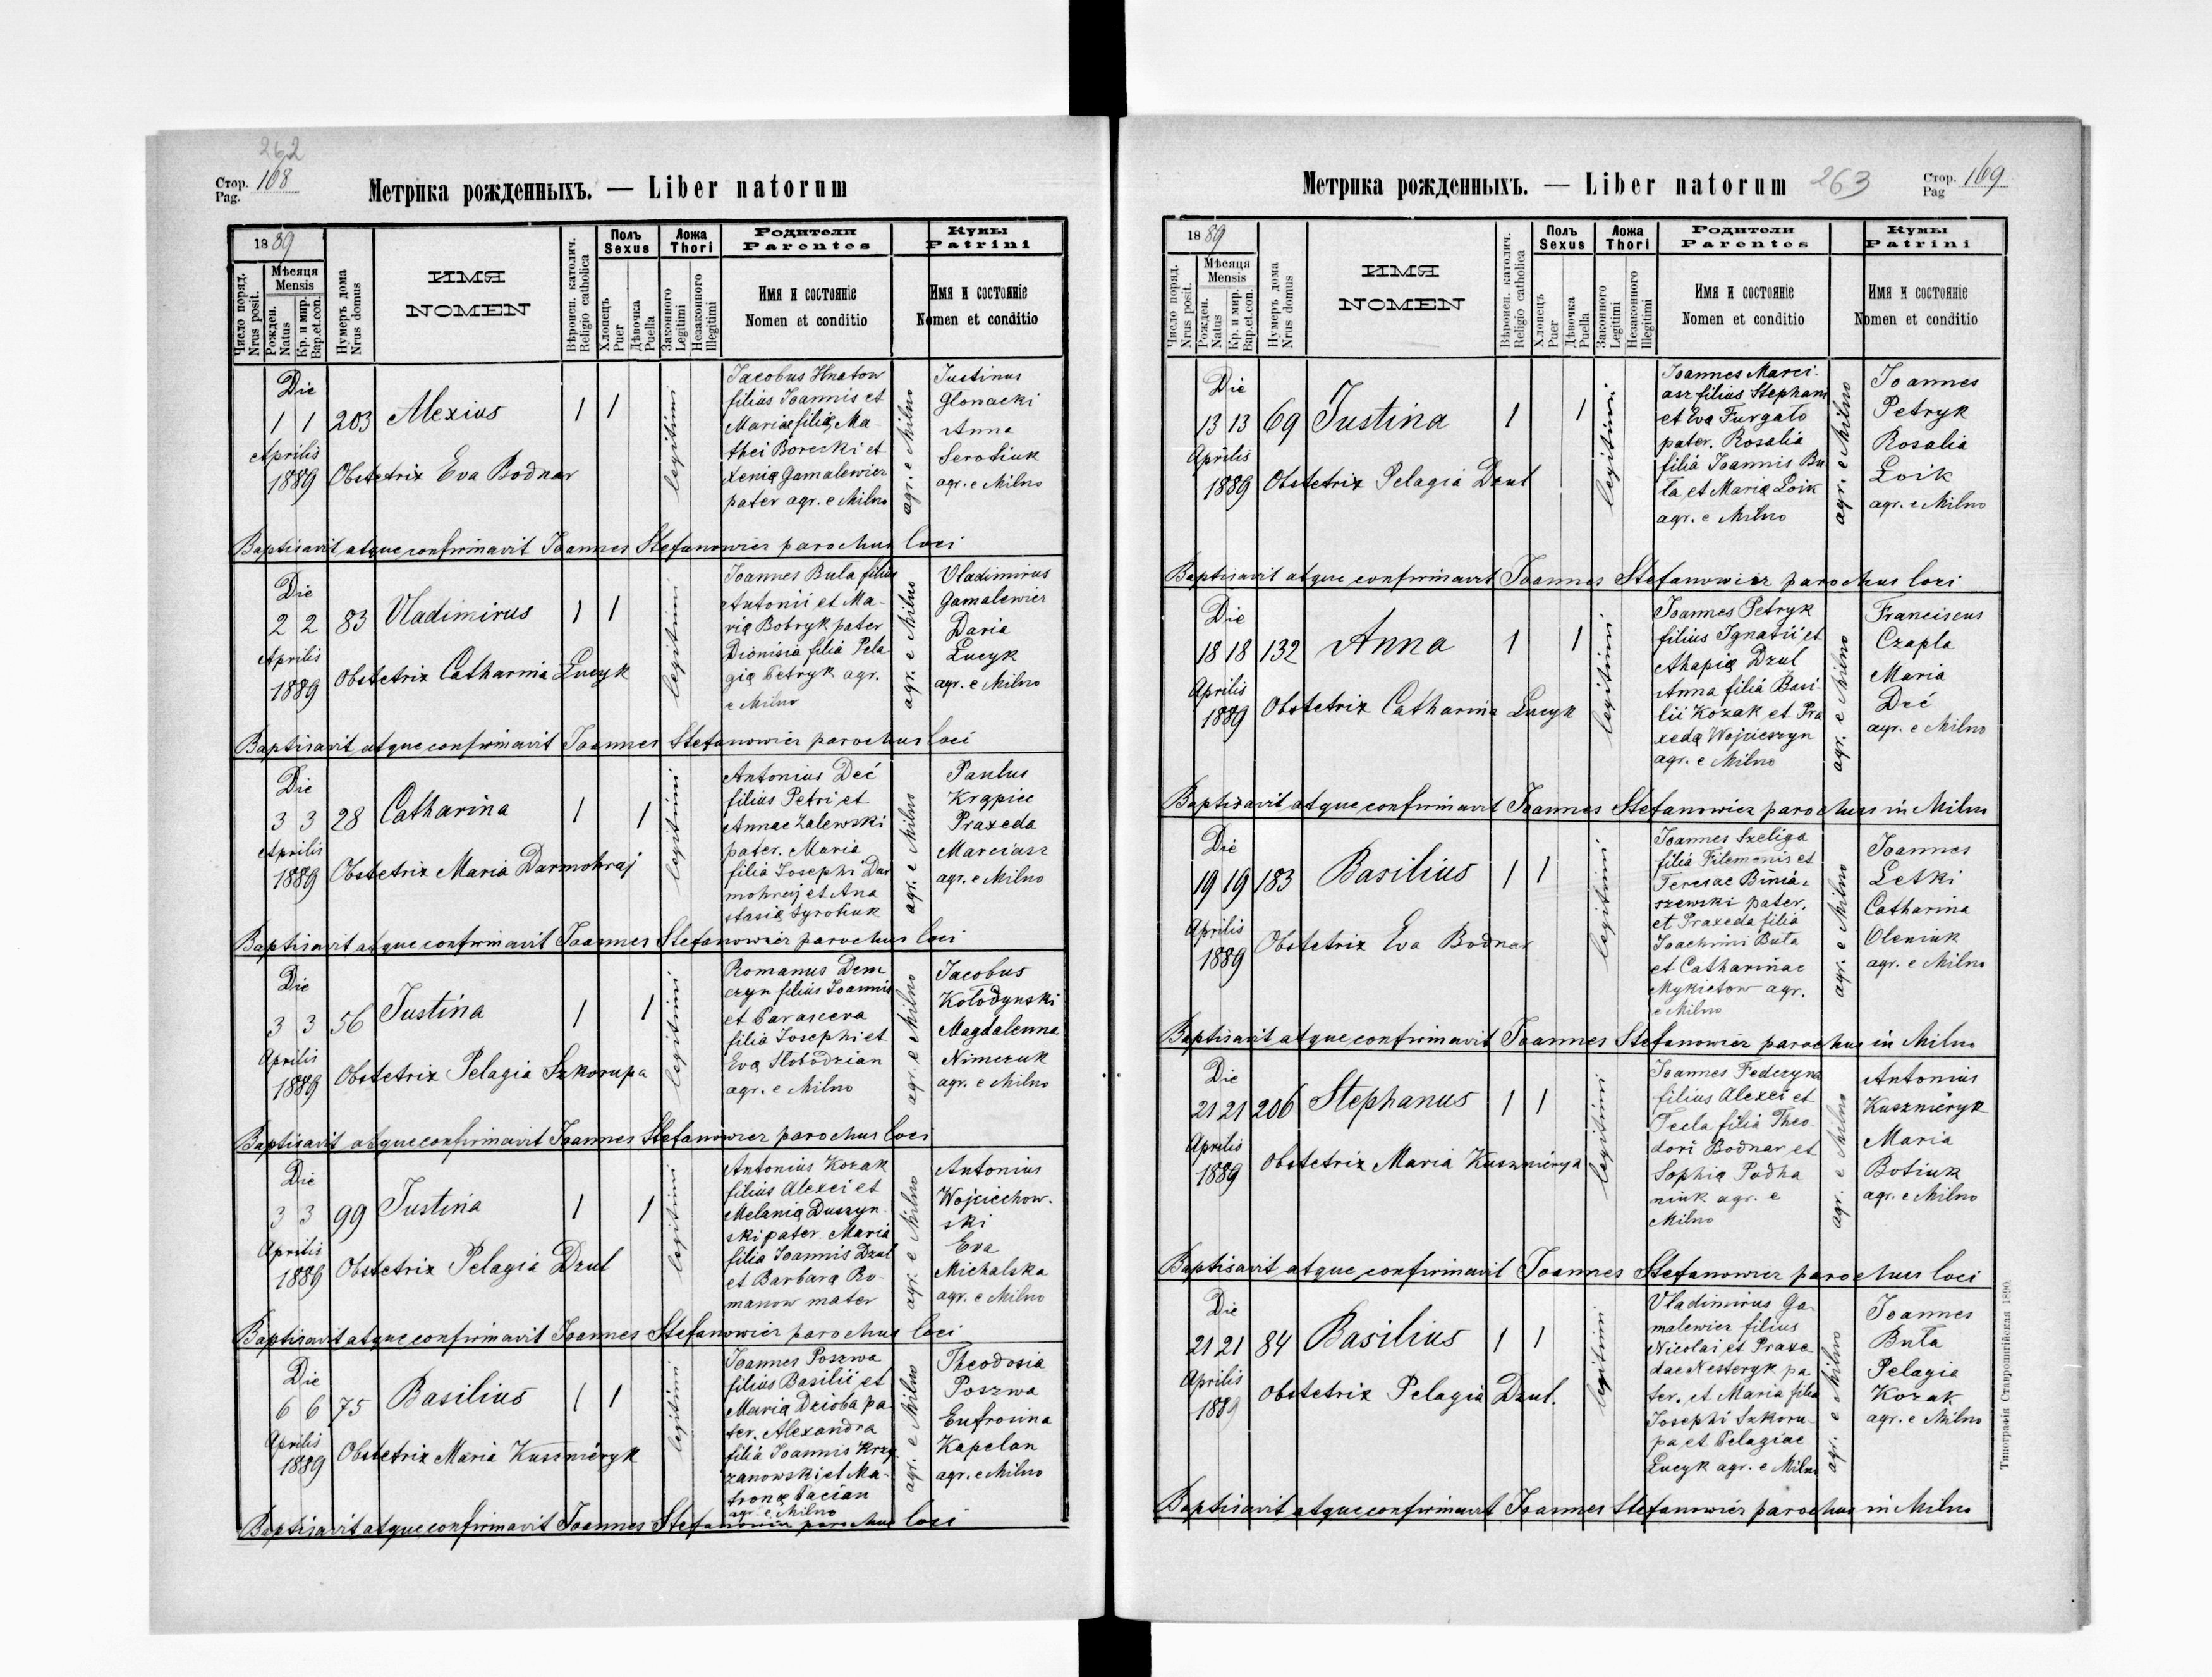 262
Стор. 168
Pag.
Метрика рожденныхъ. — Liber natorum
1889
Число поряд.
Nrus posit.
Мѣсяця
Mensis
Рожден.
Natus
Кр. и мир.
Bap.et.con.
Нумеръ дома
Nrus domus
ИМЯ
NOMEN
Вѣроисп. католич.
Religio catholica
Полъ
Sexus
Хлопецъ
Puer
Дѣвочка
Puella
Ложа
Thori
Законного
Legitimi
Незаконного
Illegitimi
Родители
Parentes
Имя и состояніе
Nomen et conditio
Кумы
Patrini
Имя и состояніе
Nomen et conditio
Die
1 1 203 Alexius 1 1
Aprilis
1889 Obstetrix Eva Bodnar
legitimi
Jacobus Hnatow
filius Joannis et
Mariæ filię Ma-
thei Borecki et
Xenię Gamalewicz
pater agr. e Milno
agr. e Milno
Justinus
Glowacki
Anna
Serotiuk
agr. e Milno
Baptisavit atque confirmavit Joannes Stefanowicz parochus loci
Die
2 2 83 Vladimirus 1 1
Aprilis
1889 Obstetrix Catharina Lucyk
legitimi
Joannes Bula filius
Antonii et Ma-
rię Bobryk pater
Dionisia filia Pela
gię Petryk agr.
e Milno
agr. e Milno
Vladimirus
Gamalewicz
Daria
Lucyk
agr. e Milno
Baptisavit atque confirmavit Joannes Stefanowicz parochus loci
Die
3 3 28 Catharina 1 1
Aprilis
1889 Obstetrix Maria Darmohraj
legitimi
Antonius Deć
filius Petri et
Annae Zalewski
pater. Maria
filia Josephi Dar
mohraj et Ana
stasię Syrotiuk
agr. e Milno
Paulus
Krąpiec
Praxeda
Marciasz
agr. e Milno
Baptisavit atque confirmavit Joannes Stefanowicz parochus loci
Die
3 3 56 Justina 1 1
Aprilis
1889 Obstetrix Pelagia Szkorupa
legitimi
Romanus Dem
czyn filius Joannis
et Parasceva
filia Josephi et
Evę Słobodzian
agr. e Milno
agr. e Milno
Jacobus
Kołodynski
Magdalenna
Nimczuk
agr. e Milno
Baptisavit atque confirmavit Joannes Stefanowicz parochus loci
Die
3 3 99 Justina 1 1
Aprilis
1889 Obstetrix Pelagia Dzul
legitimi
Antonius Kozak
filius Alexei et
Melanię Duszyn
ski pater. Maria
filia Joannis Dzul
et Barbarę Ro-
manow mater
agr. e Milno
Antonius
Wojciechow-
ski
Eva
Michalska
agr. e Milno
Baptisavit atque confirmavit Joannes Stefanowicz parochus loci
Die
6 6 75 Basilius 1 1
Aprilis
1889 Obstetrix Maria Kuszniéryk
legitimi
Joannes Poszwa
filius Basilii et
Marię Dzioba pa
ter. Alexandra
filia Joannis Krzy
zanowski et Ma-
tronę Tacian
agr. e Milno
agr. e Milno
Theodosia
Poszwa
Eufrosina
Kapelan
agr. e Milno
Baptisavit atque confirmavit Joannes Stefanowicz parochus loci
Метрика рожденныхъ. — Liber natorum
263
Стор. 169
Pag
1889
Число поряд.
Nrus posit.
Мѣсяця
Mensis
Рожден.
Natus
Кр. и мир.
Bap.et.con.
Нумеръ дома
Nrus domus
ИМЯ
NOMEN
Вѣроисп. католич.
Religio catholica
Полъ
Sexus
Хлопецъ
Puer
Дѣвочка
Puella
Ложа
Thori
Законного
Legitimi
Незаконного
Illegitimi
Родители
Parentes
Имя и состояніе
Nomen et conditio
Кумы
Patrini
Имя и состояніе
Nomen et conditio
Die
13 13 69 Justina 1 1
Aprilis
1889 Obstetrix Pelagia Dzul
legitimi
Joannes Marci-
asz filius Stephani
et Evę Furgato
pater. Rosalia
filia Joannis Bu
ła et Marię Loik
agr. e Milno
agr. e Milno
Joannes
Petryk
Rosalia
Loik
agr. e Milno
Baptisavit atque confirmavit Joannes Stefanowicz parochus loci
Die
18 18 132 Anna 1 1
Aprilis
1889 Obstetrix Catharina Lucyk
legitimi
Joannes Petryk
filius Ignatii et
Ahapię Dzul
Anna filia Basi-
lii Kozak et Pra
xedę Wojcieszyn
agr. e Milno
agr. e Milno
Franciscus
Czapla
Maria
Deć
agr. e Milno
Baptisavit atque confirmavit Joannes Stefanowicz parochus in Milno
Die
19 19 183 Basilius 1 1
Aprilis
1889 Obstetrix Eva Bodnar
legitimi
Joannes Szeliga
filia Filemonis et
Teresae Binia-
szewski pater.
et Praxeda filia
Joachimi Buła
et Catharinae
Mykietow agr.
e Milno
agr. e Milno
Joannes
Letki
Catharina
Oleniuk
agr. e Milno
Baptisavit atque confirmavit Joannes Stefanowicz parochus in Milno
Die
21 21 206 Stephanus 1 1
Aprilis
1889 Obstetrix Maria Kuszniéryk
legitimi
Joannes Federyna
filius Alexei et
Tecla filia Theo-
dori Bodnar et
Sophię Podha
niuk agr. e
Milno
agr. e Milno
Antonius
Kuszniéryk
Maria
Botiuk
agr. e Milno
Baptisavit atque confirmavit Joannes Stefanowicz parochus loci
Die
21 21 84 Basilius 1 1
Aprilis
1889 Obstetrix Pelagia Dzul.
legitimi
Vladimirus Ga-
malewicz filius
Nicolai et Praxe
dae Nesteryk pa-
ter. et Maria filia
Josephi Szkoru-
pa et Pelagiae
Lucyk agr. e Milno
agr. e Milno
Joannes
Buła
Pelagia
Kozak
agr. e Milno
Baptisavit atque confirmavit Joannes Stefanowicz parochus in Milno
Типографія Ставропигійская 1890.